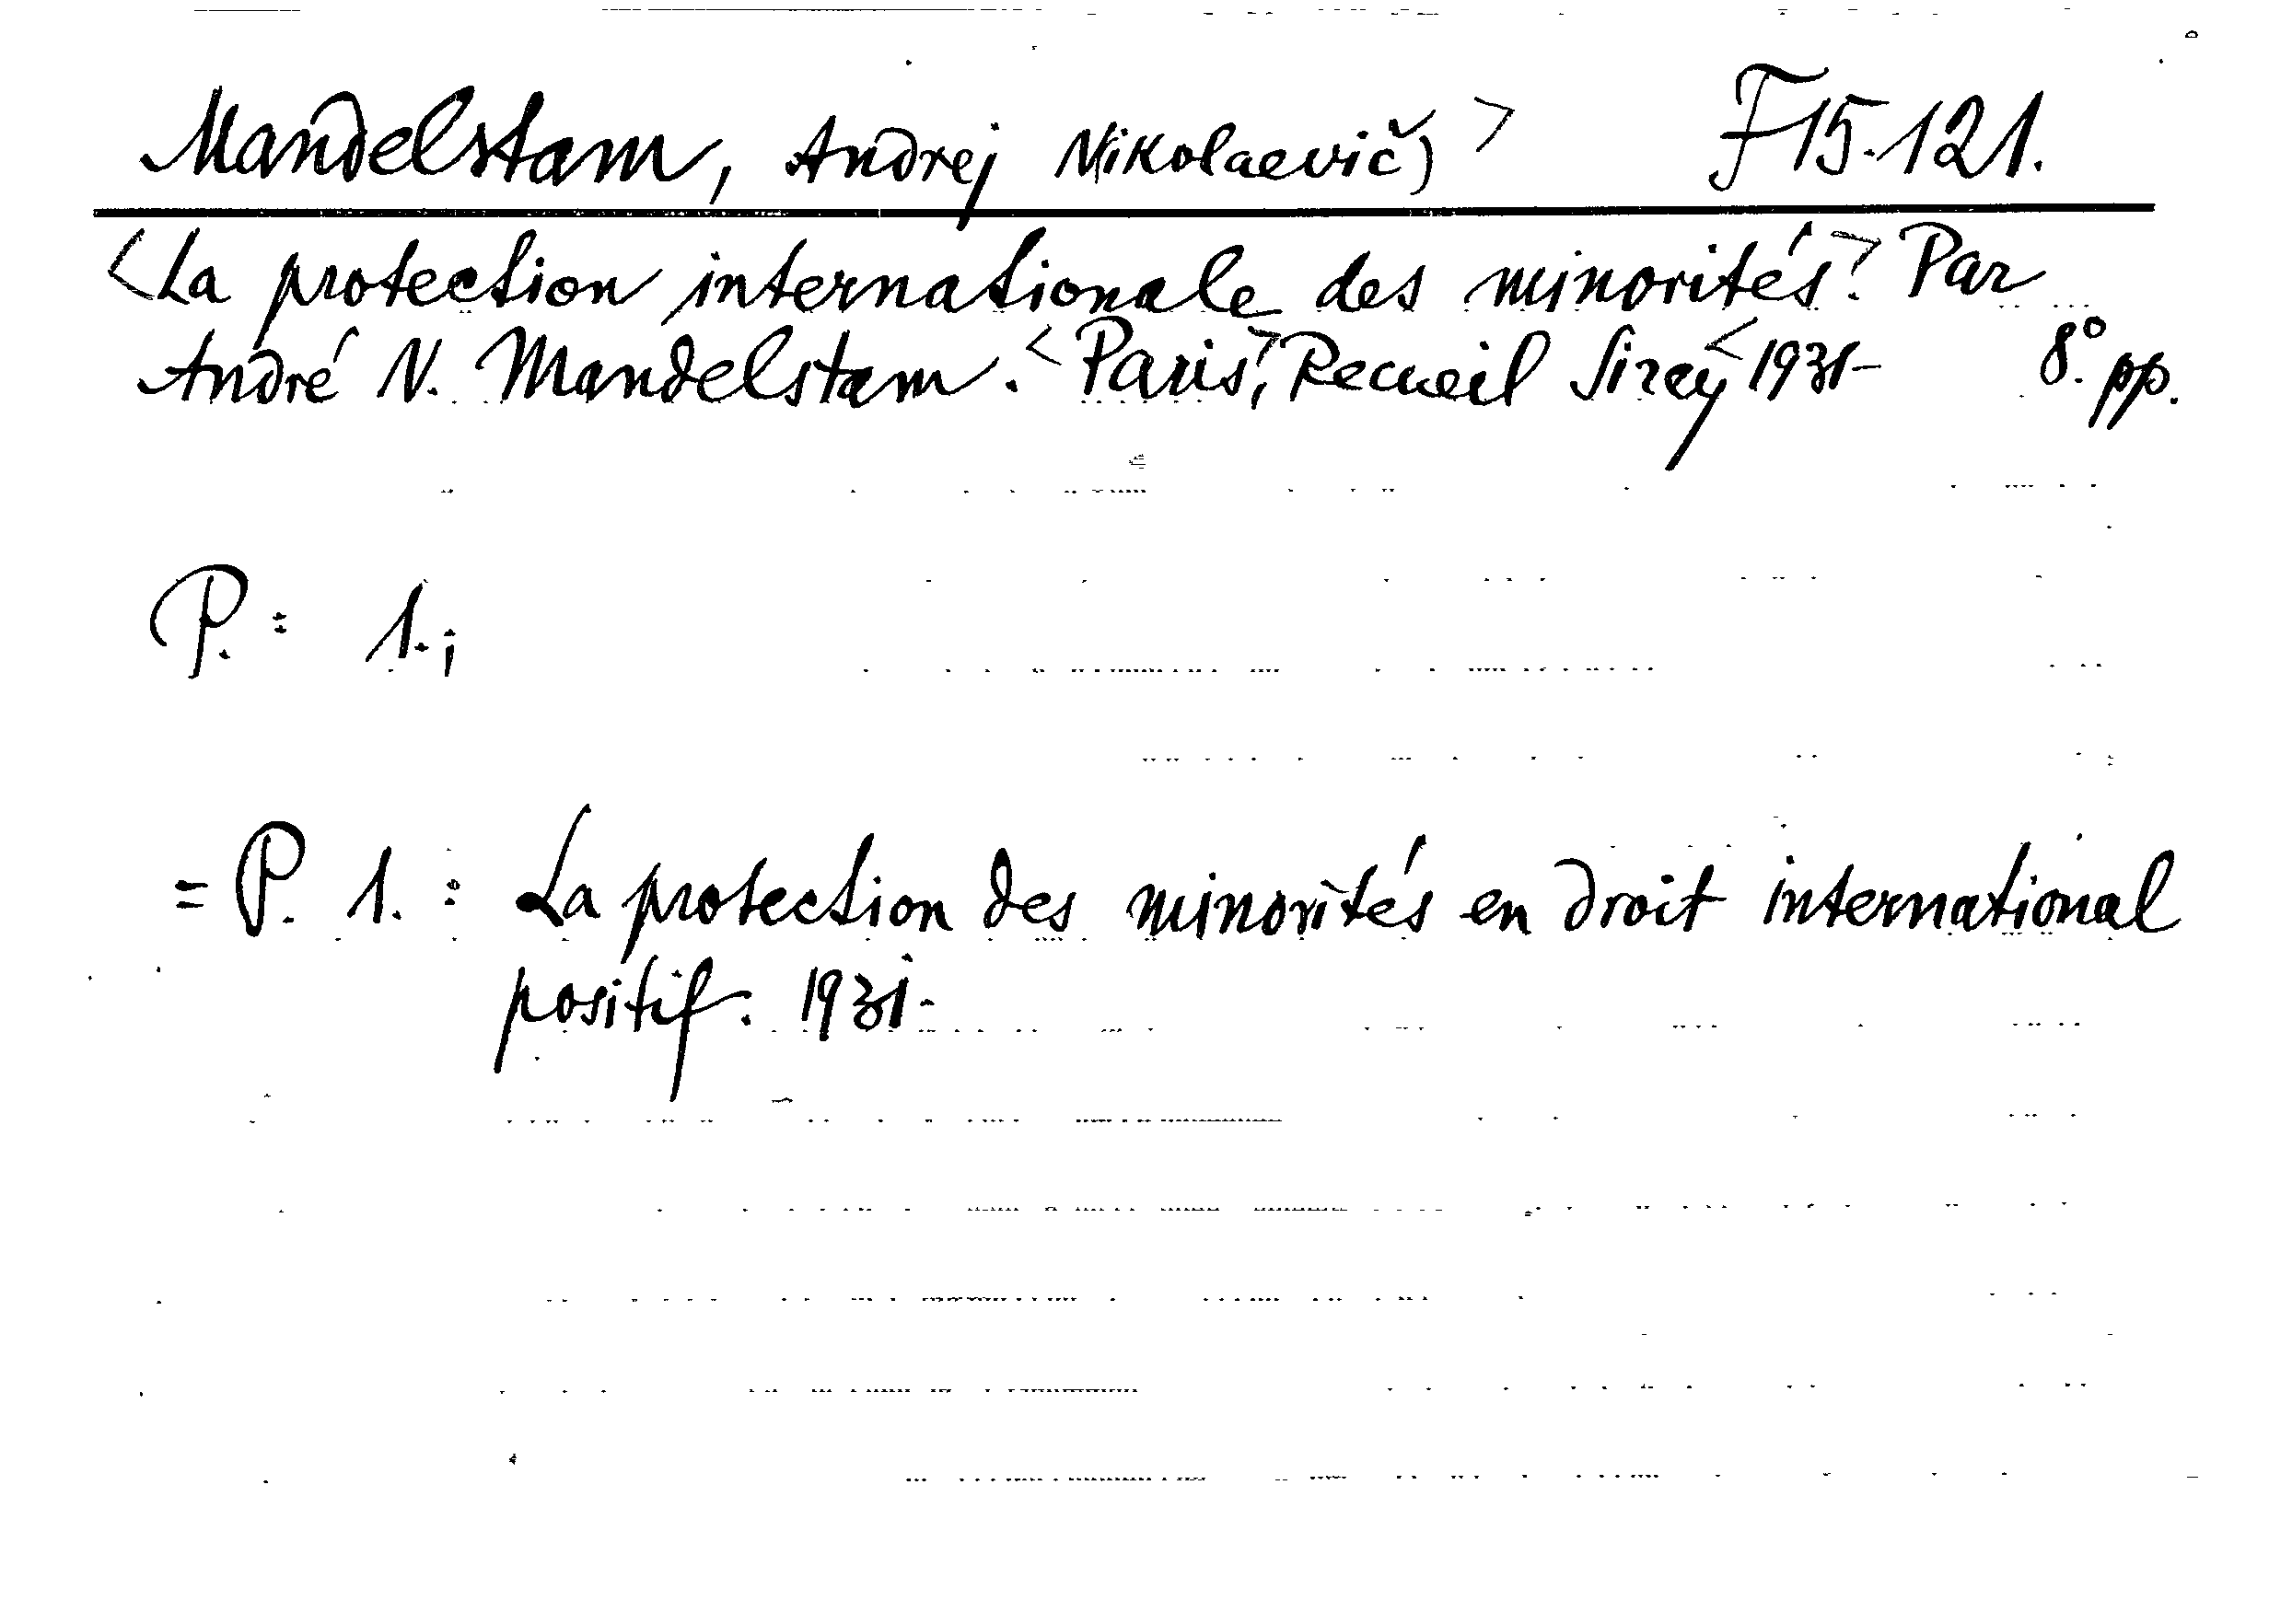 Mandelstam, Andrej Nikolaevič) > F15.121.
<La protection internationale des minorités.> Par
André N. Mandelstam. <Paris>, Recueil Sirey < 1931- 8° pp.
P.: 1.;
= P. 1. : La protection des minorités en droit international
positif. 1931-